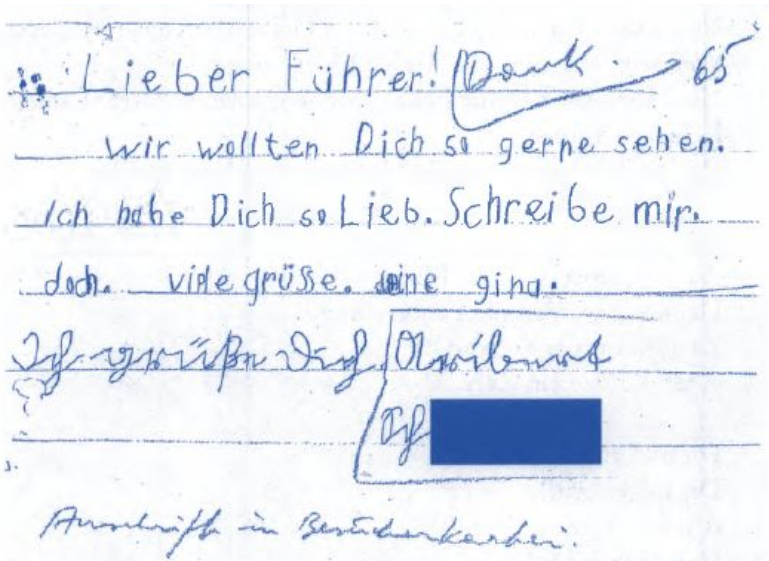 Lieber Führer! Dank 65
wir wollten Dich so gerne sehen.
Ich habe Dich so Lieb. Schreibe mir.
doch. viele grüße. deine gina.
Ich grüße Dich
Ich
Anschrift in Besucherkartei.